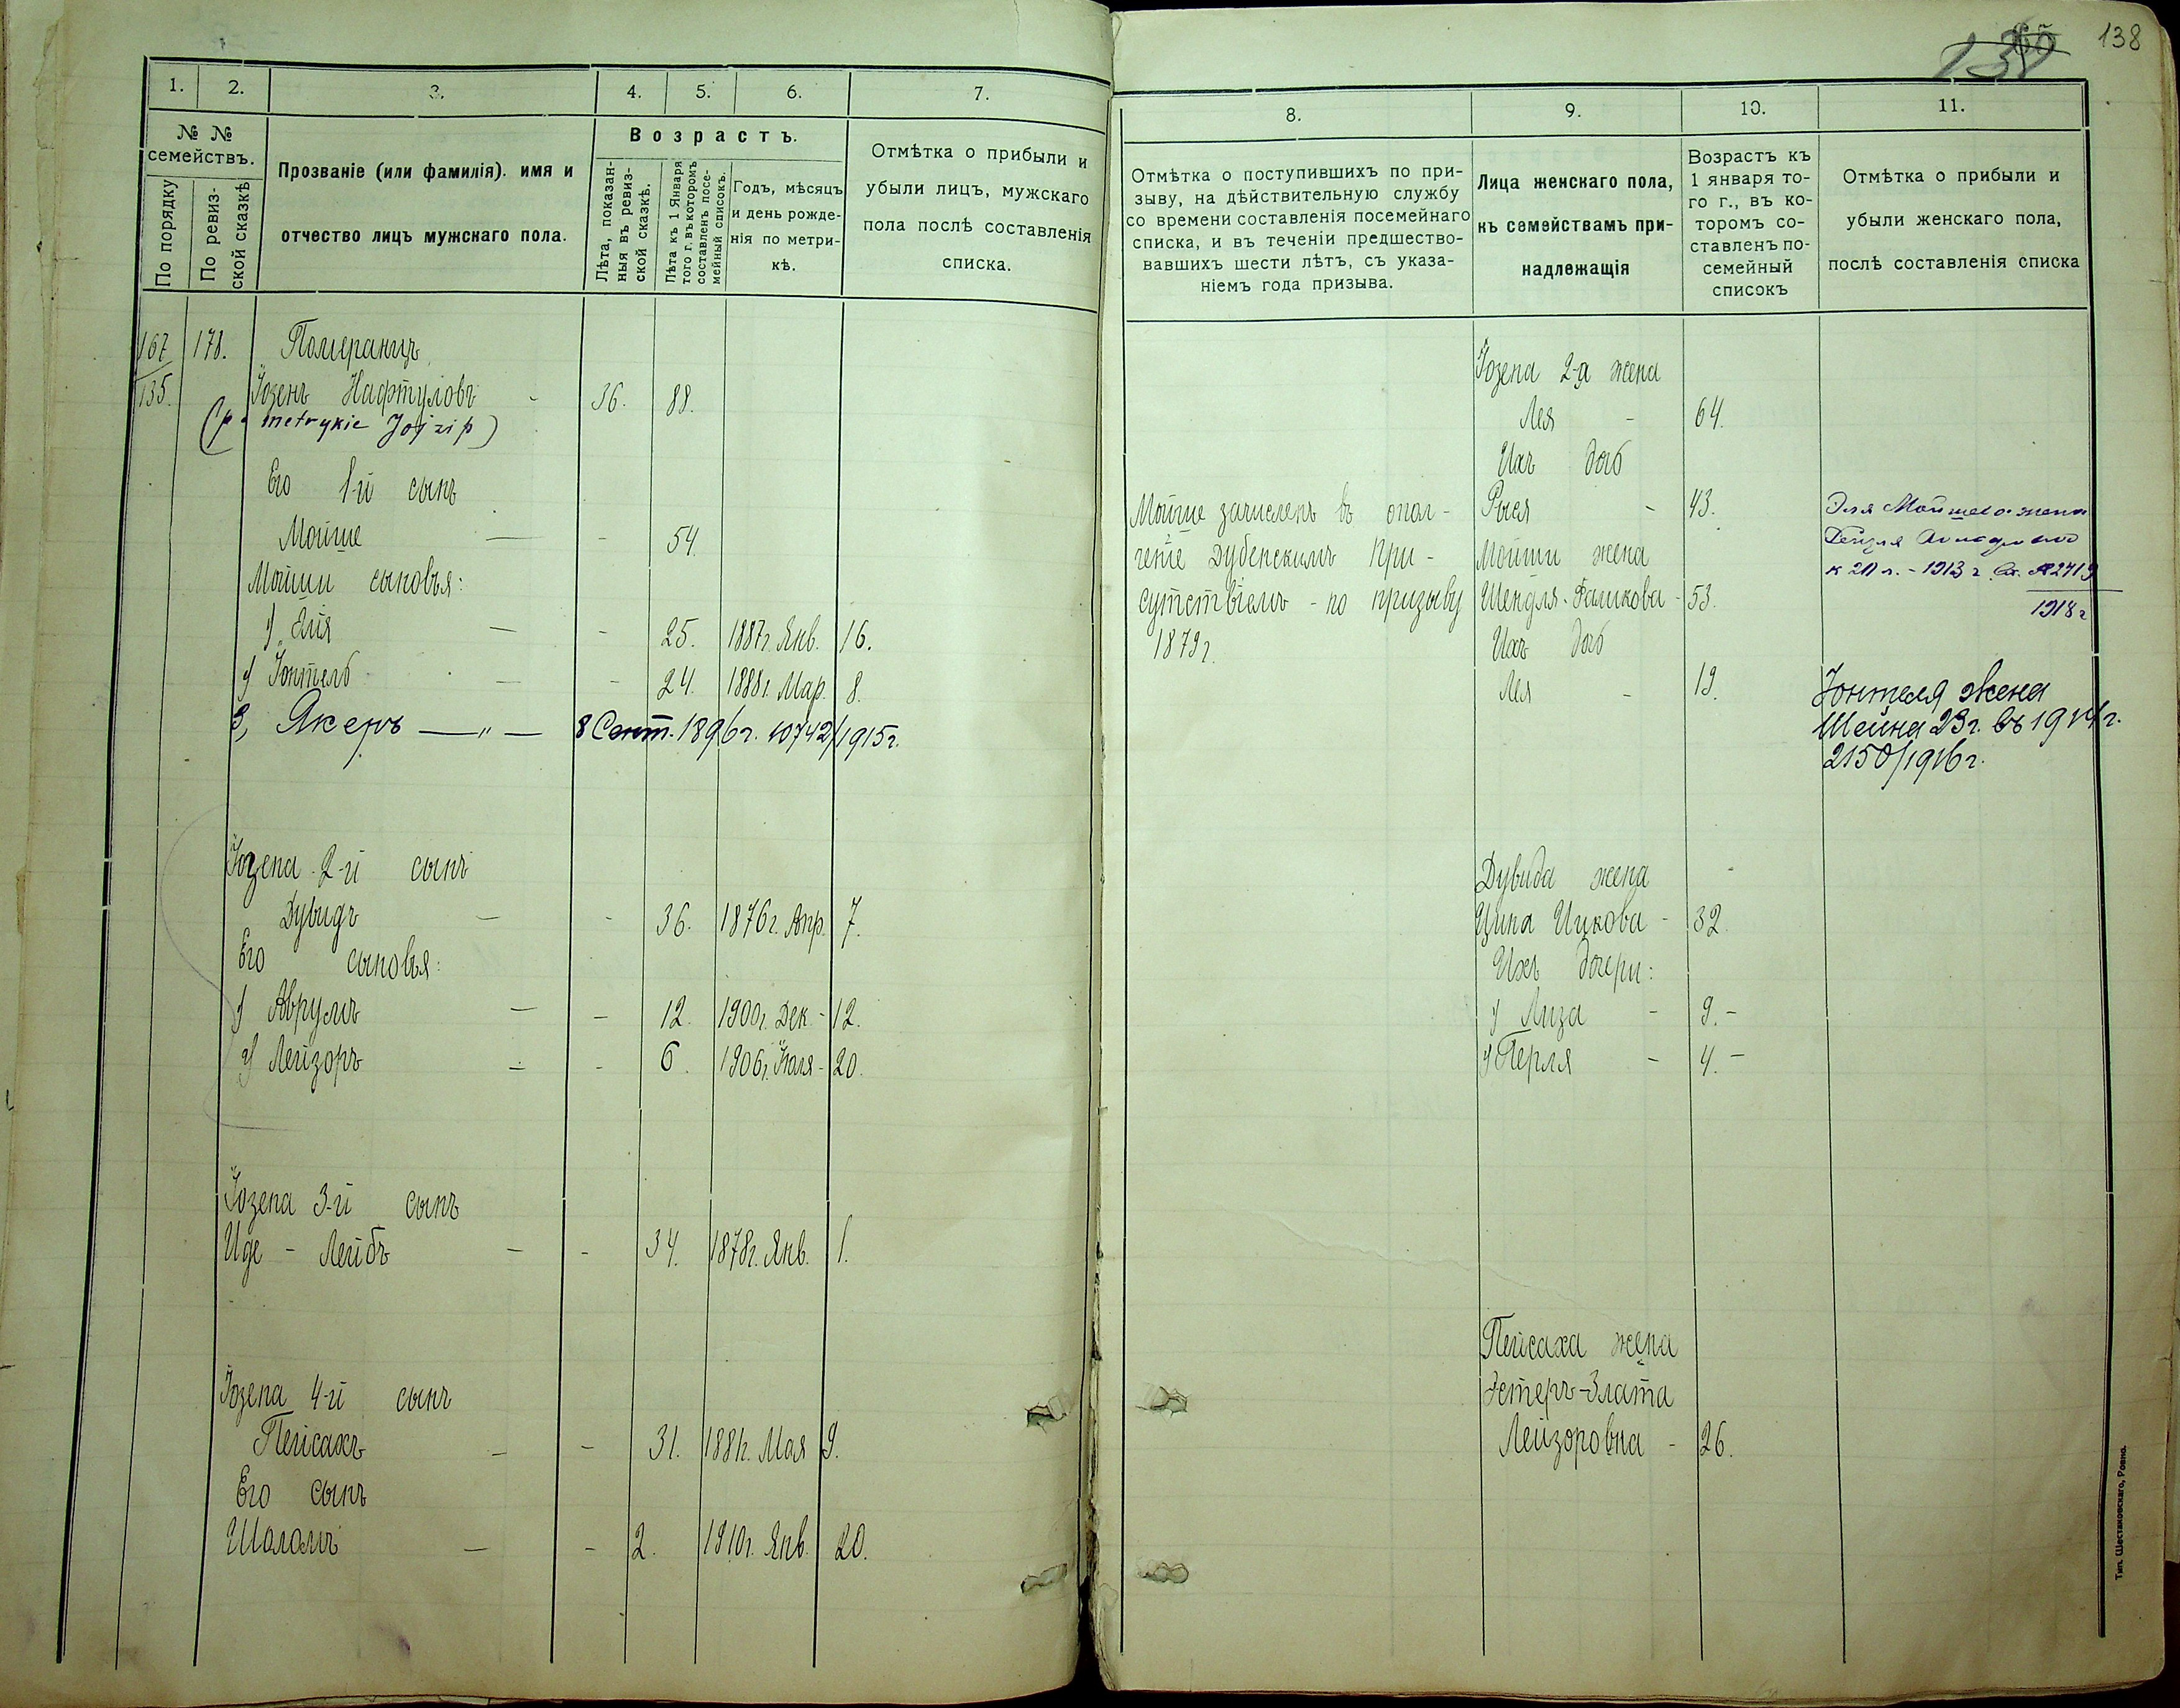 138
1.
2.
3.
4.
5.
6.
7.
№ №
семействъ.
По порядку
По ревиз-
ской сказкѣ
Прозваніе (или фамилія). имя и
отчество лицъ мужскаго пола.
Возрастъ.
Лѣта, показан-
ныя въ ревиз-
ской сказкѣ.
Лѣта къ 1 Января
того г. въ которомъ
составленъ посе-
мейный списокъ.
Годъ, мѣсяцъ
и день рожде-
нія по метри-
кѣ.
Отмѣтка о прибыли и
убыли лицъ, мужскаго
пола послѣ составленія
списка.
167/135. 178. Померанцъ
Іозепъ Нафтуловъ - 36. 88.
(po metrykie Jojzip)
Его 1-й сынъ
Мойше — - 54.
Мойши сыновья:
1) Эля — - 25. 1887г. Янв. 16.
2) Іонтель — - 24. 1888г. Мар. 8.
3, Якеръ — „ — 8 Сент. 1896г. 10742/1915г.
Іозепа 2-й сынъ
Дувидъ — - 36. 1876г. Апр. 7.
Его сыновья:
1) Аврумъ — - 12. 1900г. Дек. - 12.
2) Лейзоръ — - 6. 1906г. Іюля - 20.
Іозепа 3-й сынъ
Иде - Лейбъ - - 34. 1878г. Янв. 1.
Іозепа 4-й сынъ
Пейсахъ — - 31. 1881г. Мая 9.
Его сынъ
Шоломъ — - 2. 1910г. Янв. 20.
8.
9.
10.
11.
Отмѣтка о поступившихъ по при-
зыву, на дѣйствительную службу
со времени составленія посемейнаго
списка, и въ теченіи предшество-
вавшихъ шести лѣтъ, съ указа-
ніемъ года призыва.
Лица женскаго пола,
къ семействамъ при-
надлежащія
Возрастъ къ
1 января то-
го г., въ ко-
торомъ со-
ставленъ по-
семейный
списокъ
Отмѣтка о прибыли и
убыли женскаго пола,
послѣ составленія списка
Іозепа 2-я жена
Лея - 64.
Ихъ дочь
Рыся - 43.
Мойше зачисленъ въ опол-
ченіе Дубенскимъ При-
сутствіемъ - по призыву
1879г.
Мойши жена
Шендля-Фаликова - 53.
Ихъ дочь
Лея - 19.
Эля Мойшева жена
к 20 л. - 1913 г. № 2719
1918г
Іонтеля жена
Шейна 23г. въ 1914г.
2150/1916г.
Дувида жена
Ципа Ицкова - 32.
Ихъ дочери:
1) Лиза - 9. -
2) Перля - 4. -
Пейсаха жена
Эстеръ-Злата
Лейзоровна - 26.
Тип. Шестаковскаго, Ровно.